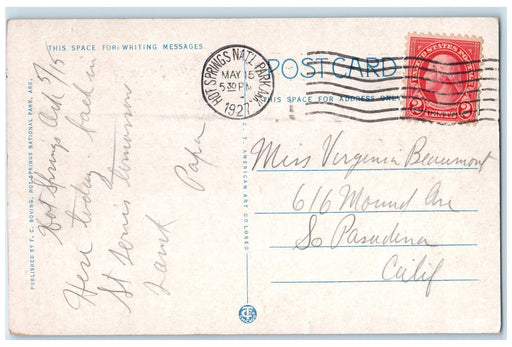 THIS SPACE FOR WRITING MESSAGES.
HOT SPRINGS NAT'L PARK, ARK.
MAY 15
5 30 PM
1927
POSTCARD
THIS SPACE FOR ADDRESS ONLY
UNITED STATES POSTAGE
2 CENTS 2
Hot Springs Ark 5/15
Here today back in
St Louis tomorrow
Love
Papa
Miss Virginia Beaumont
616 Mound Ave
So Pasadena
Calif
PUBLISHED BY HOT SPRINGS NATIONAL PARK, ARK.
AMERICAN ART COLORED